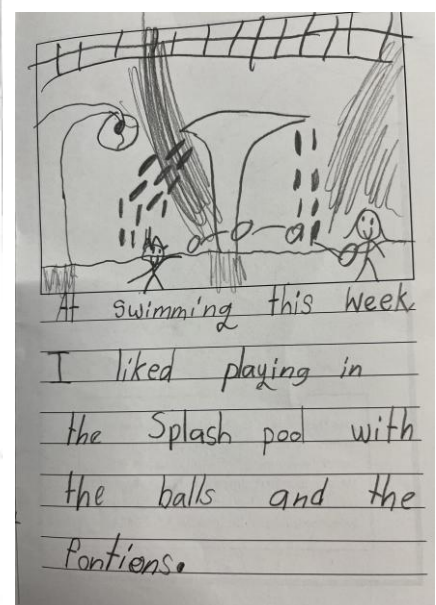 At swimming this week
I liked playing in
the Splash pool with
the balls and the
Pontiens.